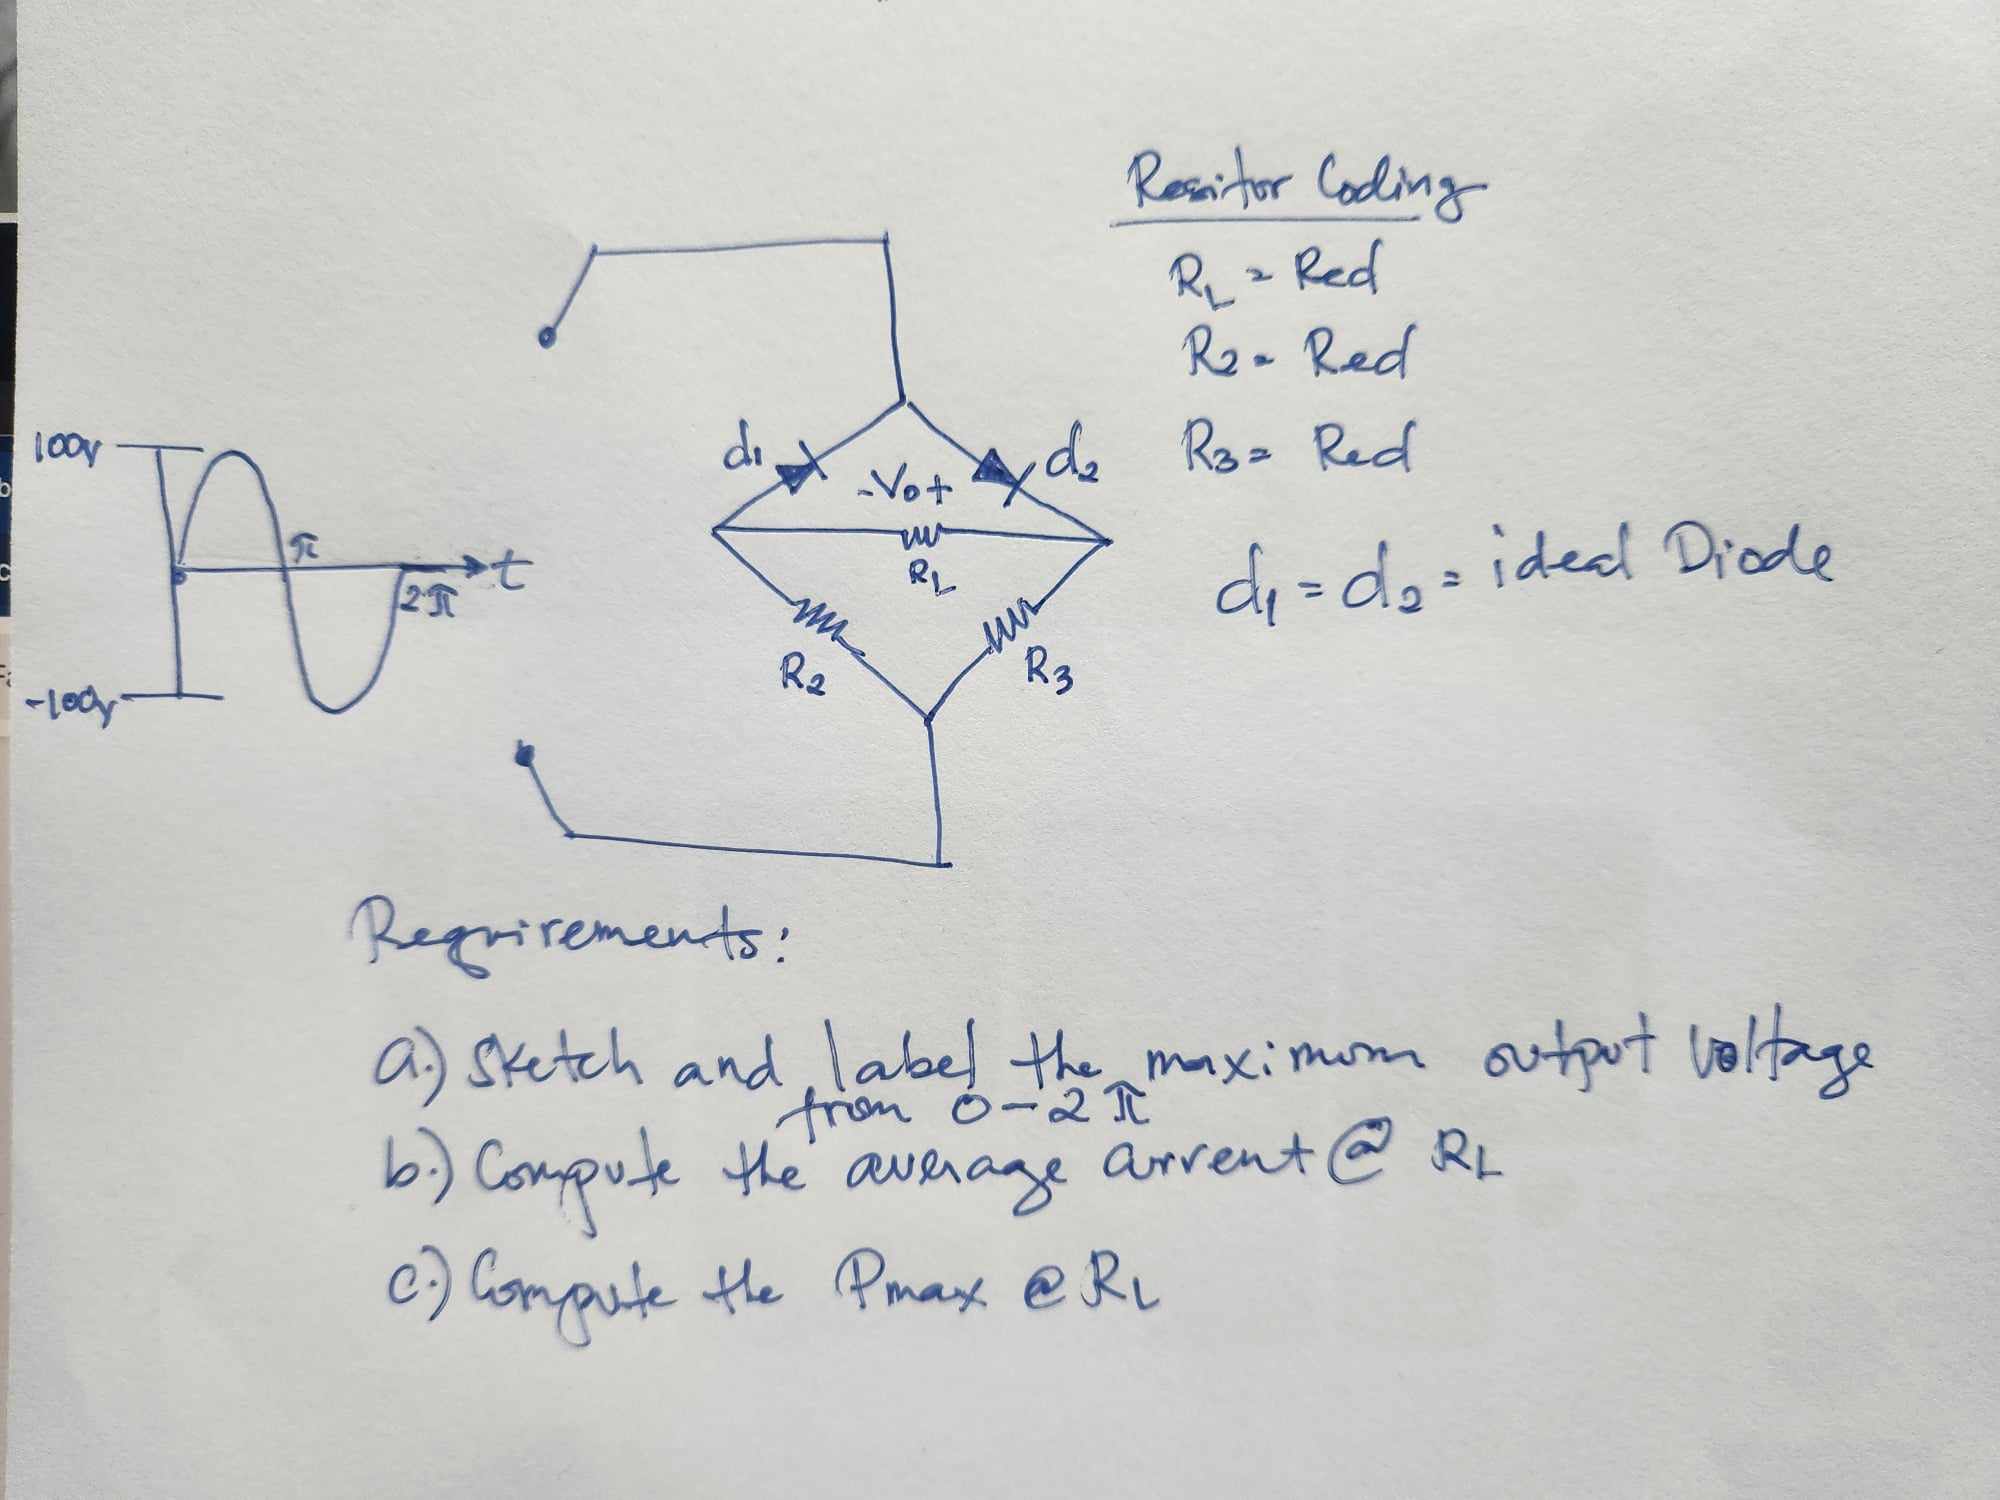 Resistor Coding
RL = Red
R2 = Red
R3 = Red
d1 = d2 = ideal Diode
100v
-100v
π
2π
t
d1
d2
- Vo +
RL
R2
R3
Requirements:
a.) Sketch and label the maximum output voltage
from 0 - 2π
b.) Compute the average current @ RL
c.) Compute the Pmax @ RL